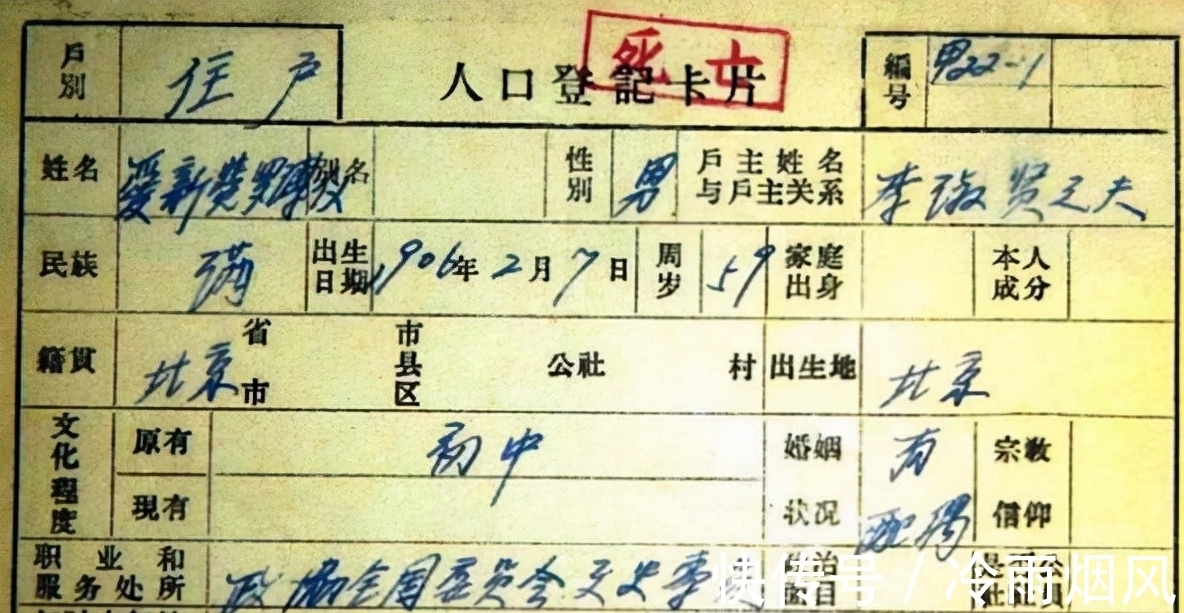 户别 住户 人口登記卡片 死亡 編号 男22-1
姓名 爱新觉罗溥仪 别名 性别 男 户主姓名与户主关系 李淑贤之夫
民族 满 出生日期 1906年2月7日 周岁 59 家庭出身 本人成分
籍贯 北京 省市 市县区 公社 村 出生地 北京
文化程度 原有 初中 婚姻状况 有配偶 宗教信仰
現有
职业和服务处所 政协全国委员会文史专
快传号 / 冷雨烟风